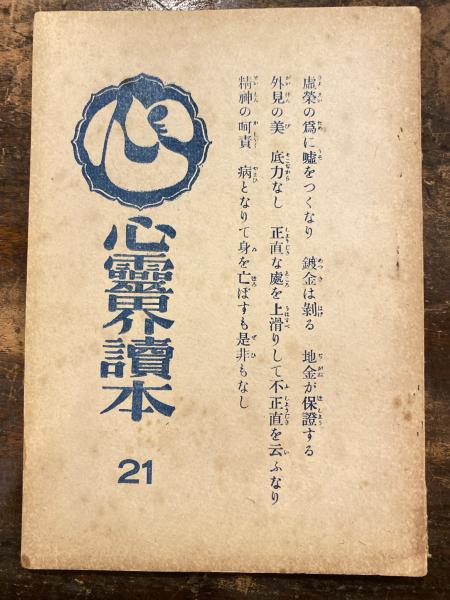 虛榮の爲に噓をつくなり 鍍金は剝る 地金が保證する
外見の美 底力なし 正直な處を上滑りして不正直を云ふなり
精神の呵責 病となりて身を亡ばすも是非もなし
心
心靈界讀本
21